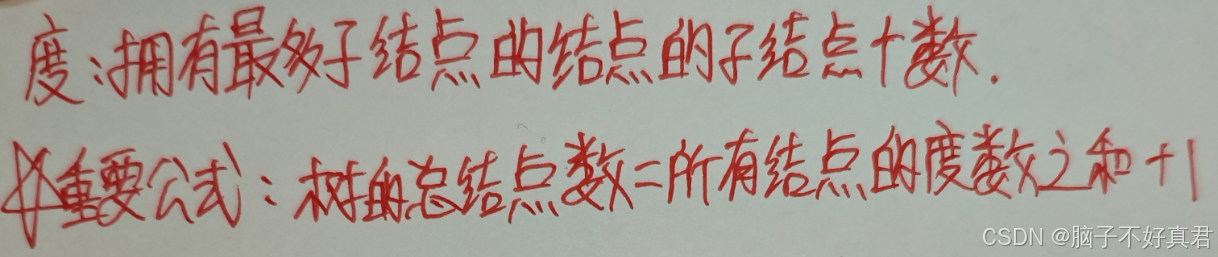 度:拥有最多子结点的结点的子结点个数.
☆重要公式:树的总结点数=所有结点的度数之和+1
CSDN @脑子不好真君